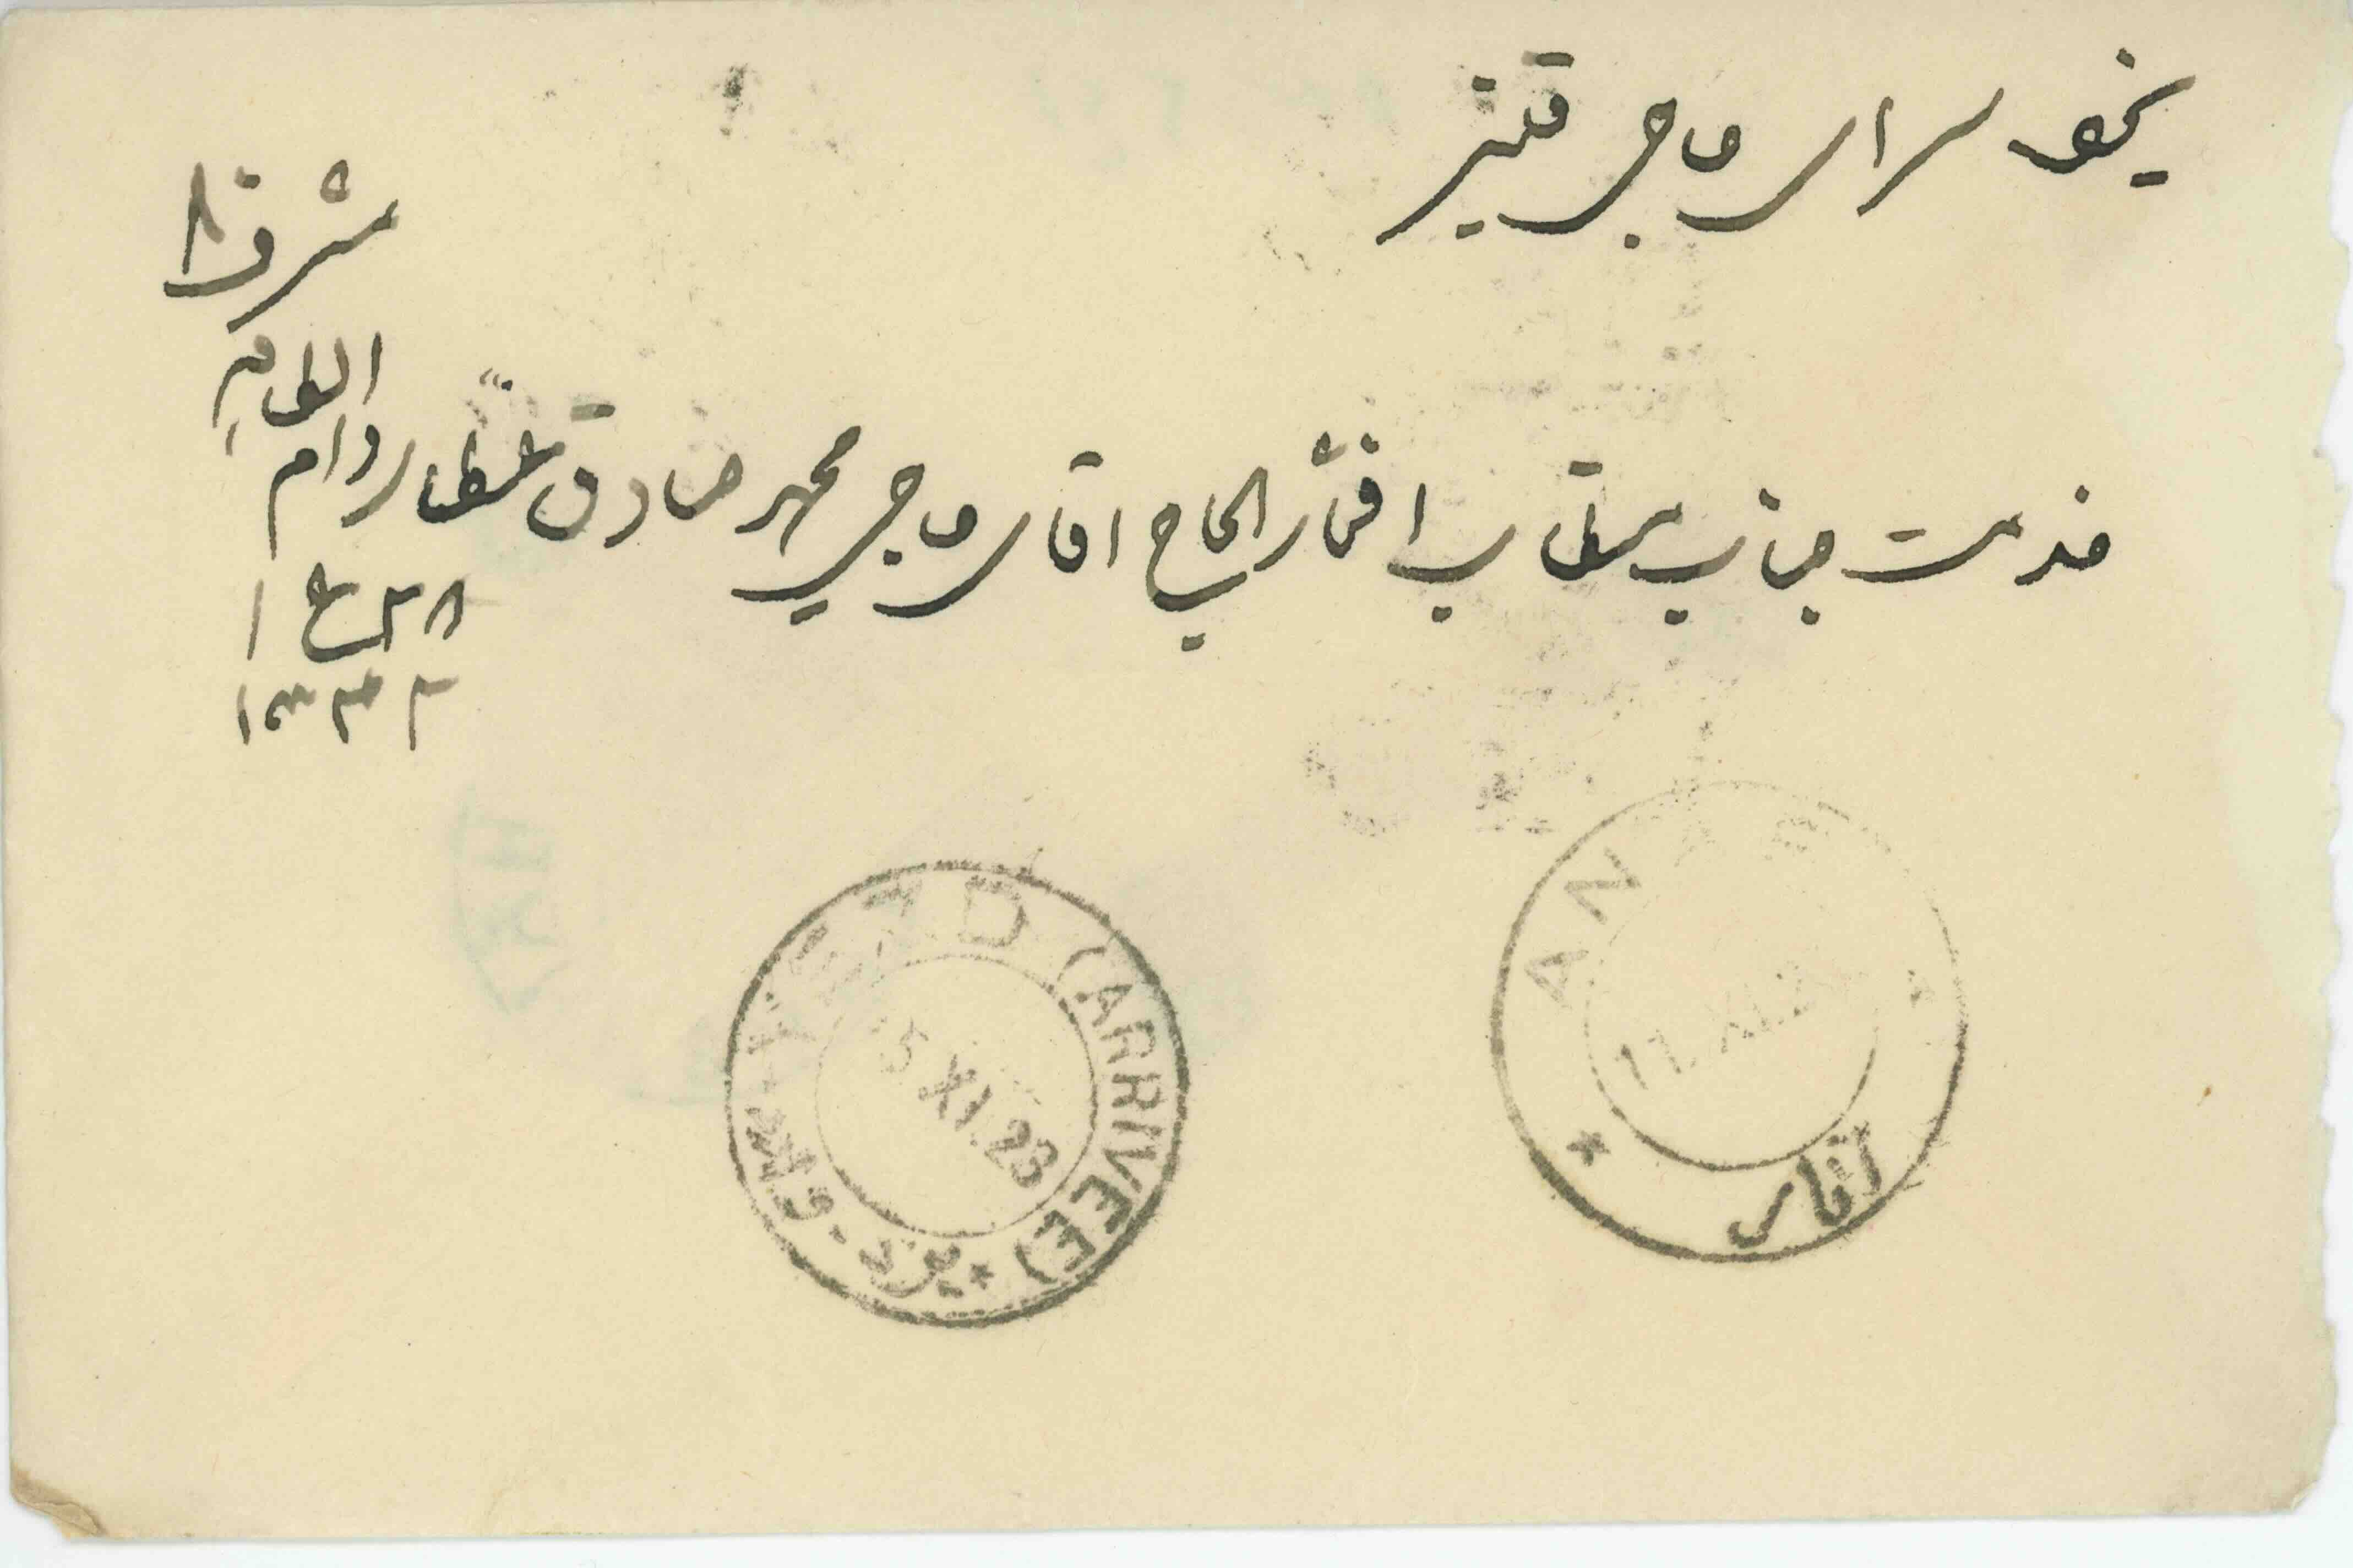 سرای حاجی قنبر
خدمت جناب مستطاب افتخار الحاج آقای حاجی محمد صادق عطار دام
مشرف
۲۸ ع ۱
۱۳۴۲
YEZD (ARRIVEE)
15 XI. 23
یزد
AN
11. XI. 2
انار